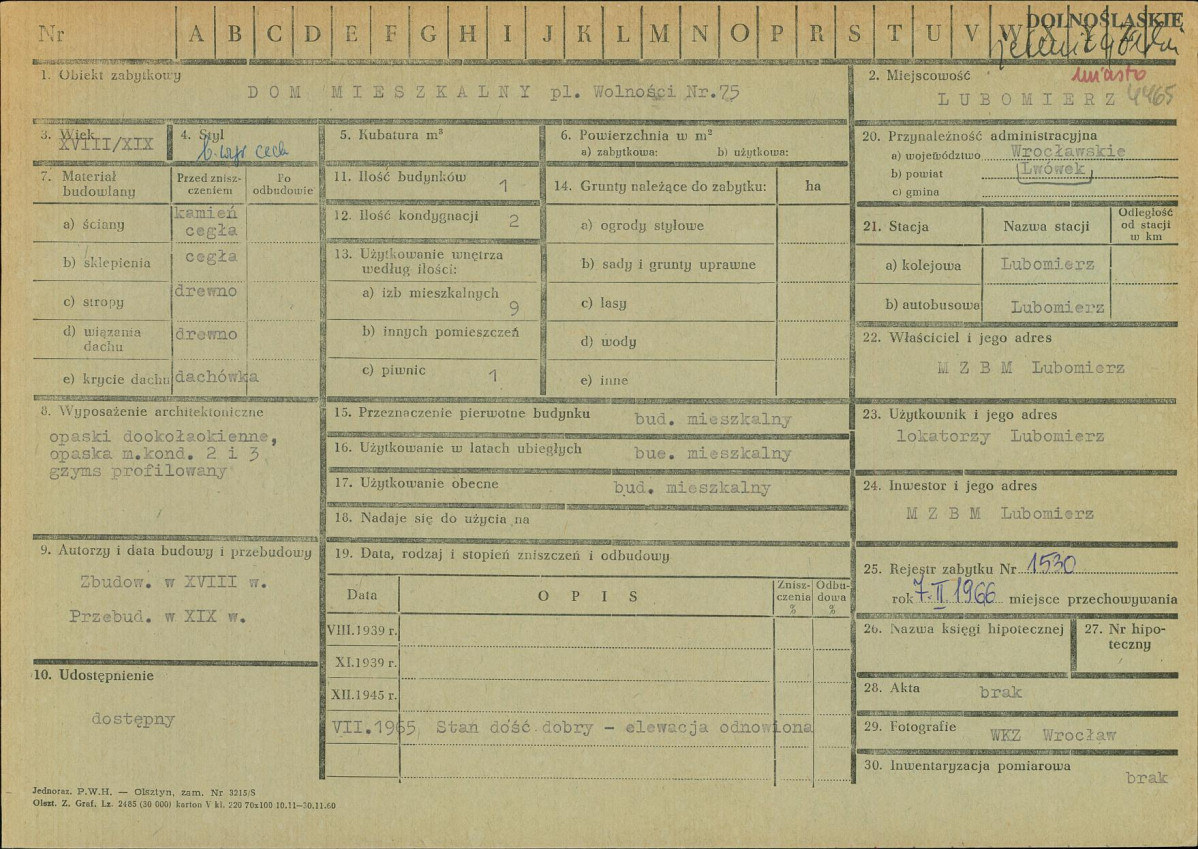 Nr A B C D E F G H I J K L M N O P R S T U V W X Y Z
DOLNOŚLĄSKIE
miasto
1. Obiekt zabytkowy
DOM MIESZKALNY pl. Wolności Nr.75
2. Miejscowość
LUBOMIERZ 4465
3. Wiek
XVIII/XIX
4. Styl
b. wyr. cech
5. Kubatura m³
6. Powierzchnia w m²
a) zabytkowa: b) użytkowa:
7. Materiał budowlany
Przed zniszczeniem
Po odbudowie
a) ściany kamień
cegła
b) sklepienia cegła
c) stropy drewno
d) wiązania dachu drewno
e) krycie dachu dachówka
8. Wyposażenie architektoniczne
opaski dookołaokienne,
opaska m.kond. 2 i 3
gzyms profilowany
9. Autorzy i data budowy i przebudowy
Zbudow. w XVIII w.
Przebud. w XIX w.
10. Udostępnienie
dostępny
11. Ilość budynków 1
12. Ilość kondygnacji 2
13. Użytkowanie wnętrza
według ilości:
a) izb mieszkalnych 9
b) innych pomieszczeń
c) piwnic 1
14. Grunty należące do zabytku: ha
a) ogrody stylowe
b) sady i grunty uprawne
c) lasy
d) wody
e) inne
15. Przeznaczenie pierwotne budynku bud. mieszkalny
16. Użytkowanie w latach ubiegłych bue. mieszkalny
17. Użytkowanie obecne bud. mieszkalny
18. Nadaje się do użycia na
19. Data, rodzaj i stopień zniszczeń i odbudowy
Data OPIS Zniszczenia % Odbudowa %
VIII.1939 r.
XI.1939 r.
XII.1945 r.
VII.1965 Stan dość dobry - elewacja odnowiona
20. Przynależność administracyjna
a) województwo Wrocławskie
b) powiat Lwówek
c) gmina
21. Stacja Nazwa stacji Odległość od stacji w km
a) kolejowa Lubomierz
b) autobusowa Lubomierz
22. Właściciel i jego adres
M Z B M Lubomierz
23. Użytkownik i jego adres
lokatorzy Lubomierz
24. Inwestor i jego adres
M Z B M Lubomierz
25. Rejestr zabytku Nr 1530
rok 7.II.1966 miejsce przechowywania
26. Nazwa księgi hipotecznej
27. Nr hipoteczny
28. Akta brak
29. Fotografie WKZ Wrocław
30. Inwentaryzacja pomiarowa
brak
Jednoraz. P.W.H. — Olsztyn, zam. Nr 3215/S
Olszt. Z. Graf. Lz. 2485 (30 000) karton V kl. 220 70x100 10.11—30.11.60